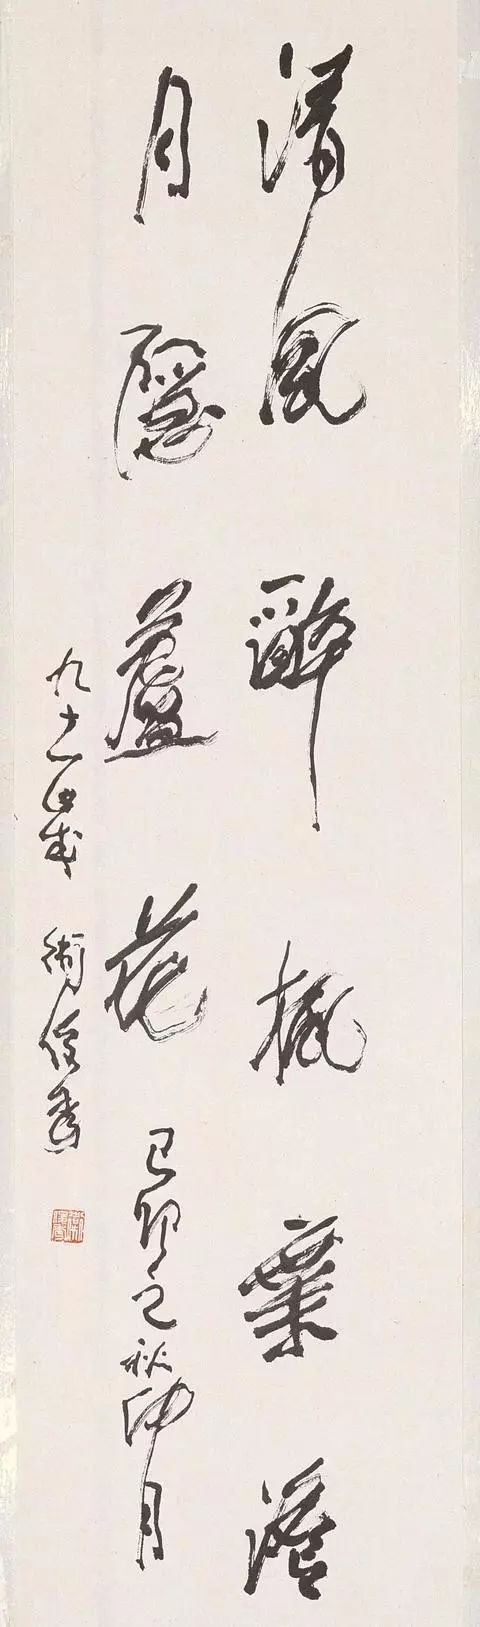 清風醉楓葉澹
月隱蘆花己卯之秋仲月
九十一歲衛俊秀